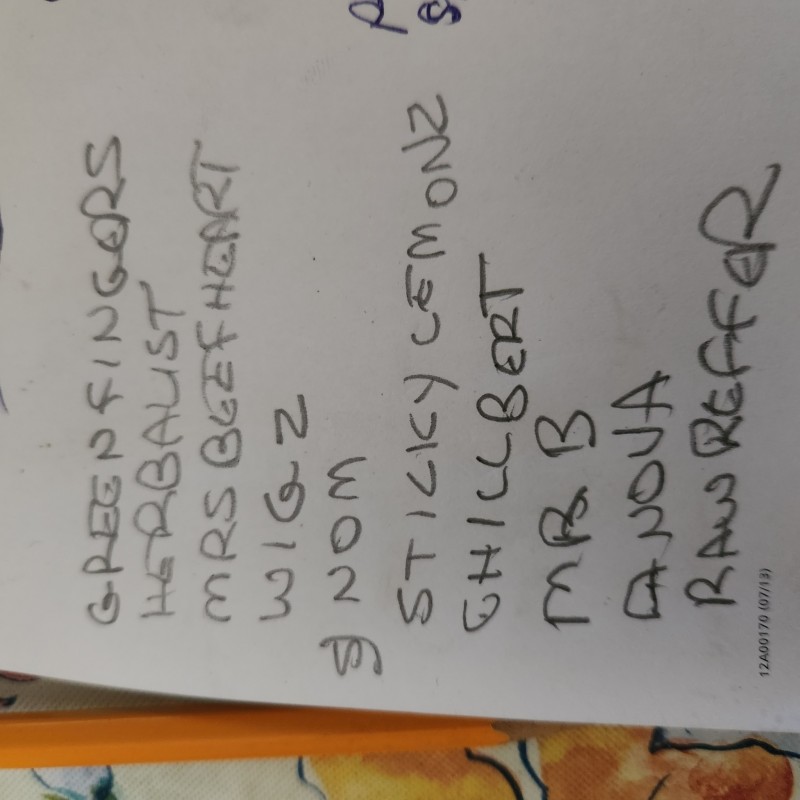 GREENFINGERS
HERBALIST
MRSBEEFHEART
WIGZ
gNOM
STICKYLEMONZ
CHILLBERT
MR B
ANOVA
RAWREFFER
12A00170 (07/13)